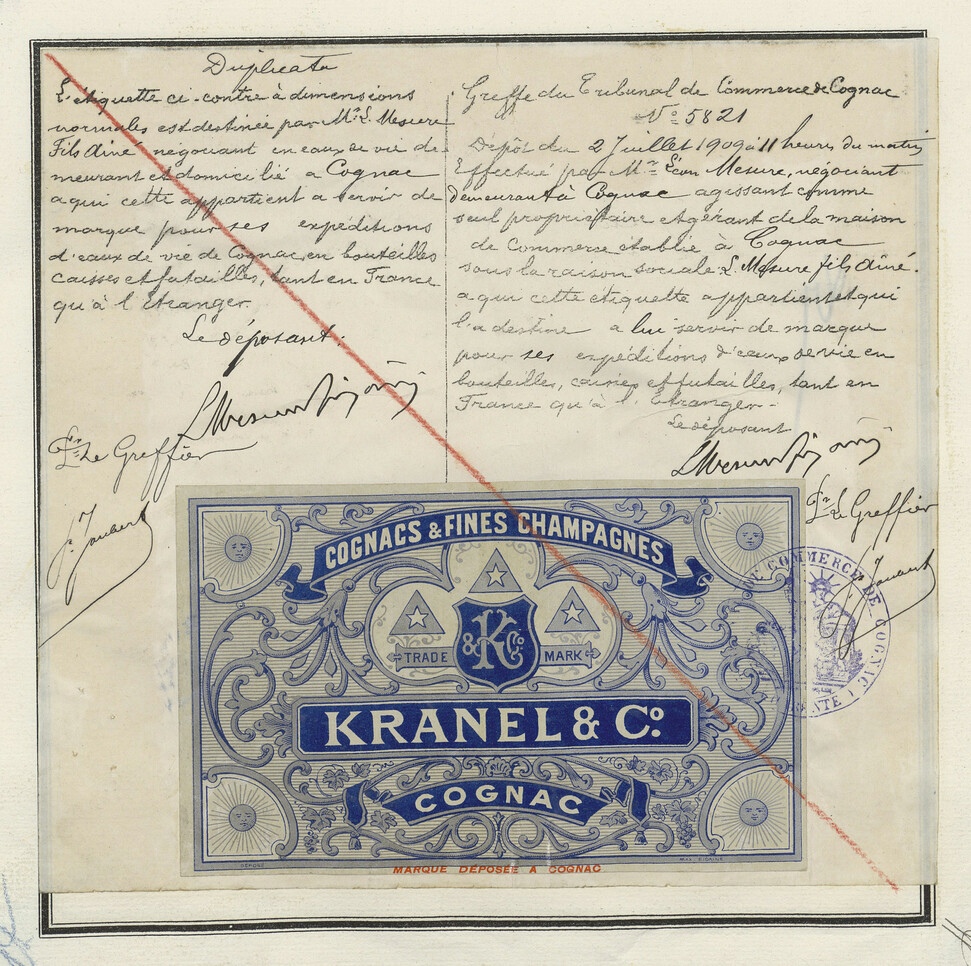 Duplicata
L'étiquette ci-contre à dimensions
normales est destinée par Mr L. Mesure
Fils Aîné négociant en eaux de vie de
meurant et domicilié à Cognac
a qui cette appartient a servir de
marque pour ses expéditions
d'eaux de vie de Cognac, en bouteilles
caisses et futailles, tant en France
qu'à l'étranger.
Le déposant.
L Mesure fils aîné
Pr Le Greffier
J. Joubert
Greffe du Tribunal de Commerce de Cognac
No 5821
Dépôt du 2 Juillet 1909 à 11 heures du matin
Effectué par Mr Léon Mesure, négociant
demeurant à Cognac agissant comme
seul propriétaire et gérant de la maison
de Commerce établie à Cognac
sous la raison sociale: L. Mesure fils aîné.
a qui cette étiquette appartient et qui
l'a destine a lui servir de marque
pour ses expéditions d'eaux de vie en
bouteilles, caisses et futailles, tant en
France qu'à l'Etranger-
Le déposant
L Mesure fils aîné
Pr Le Greffier
J. Joubert
COGNACS & FINES CHAMPAGNES
K & Co
TRADE MARK
KRANEL & Co.
COGNAC
DÉPOSÉ
MARQUE DÉPOSÉE A COGNAC
DE COMMERCE DE COGNAC